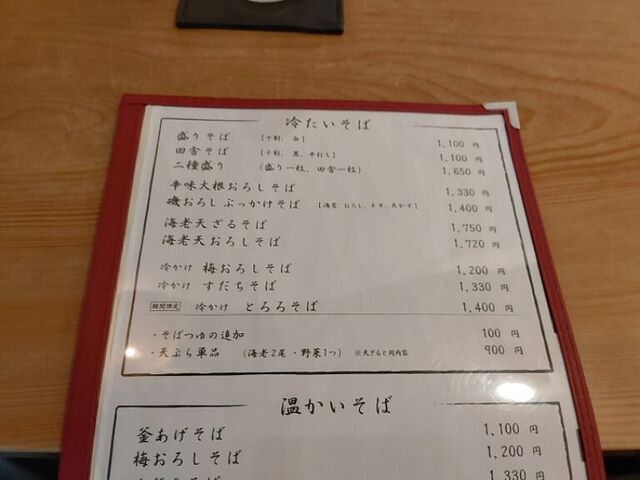 冷たいそば
盛りそば 【十割、白】 1,100 円
田舎そば 【十割、黒、平打ち】 1,100 円
二種盛り (盛り一枚、田舎一枚) 1,650 円
辛味大根おろしそば 1,330 円
磯おろしぶっかけそば 【海苔、おろし、ネギ、天かす】 1,400 円
海老天ざるそば 1,750 円
海老天おろしそば 1,720 円
冷かけ 梅おろしそば 1,200 円
冷かけ すだちそば 1,330 円
期間限定 冷かけ とろろそば 1,400 円
・そばつゆの追加 100 円
・天ぷら単品 (海老2尾・野菜1つ) ※天ざると同内容 900 円
温かいそば
釜あげそば 1,100 円
梅おろしそば 1,200 円
1,330 円